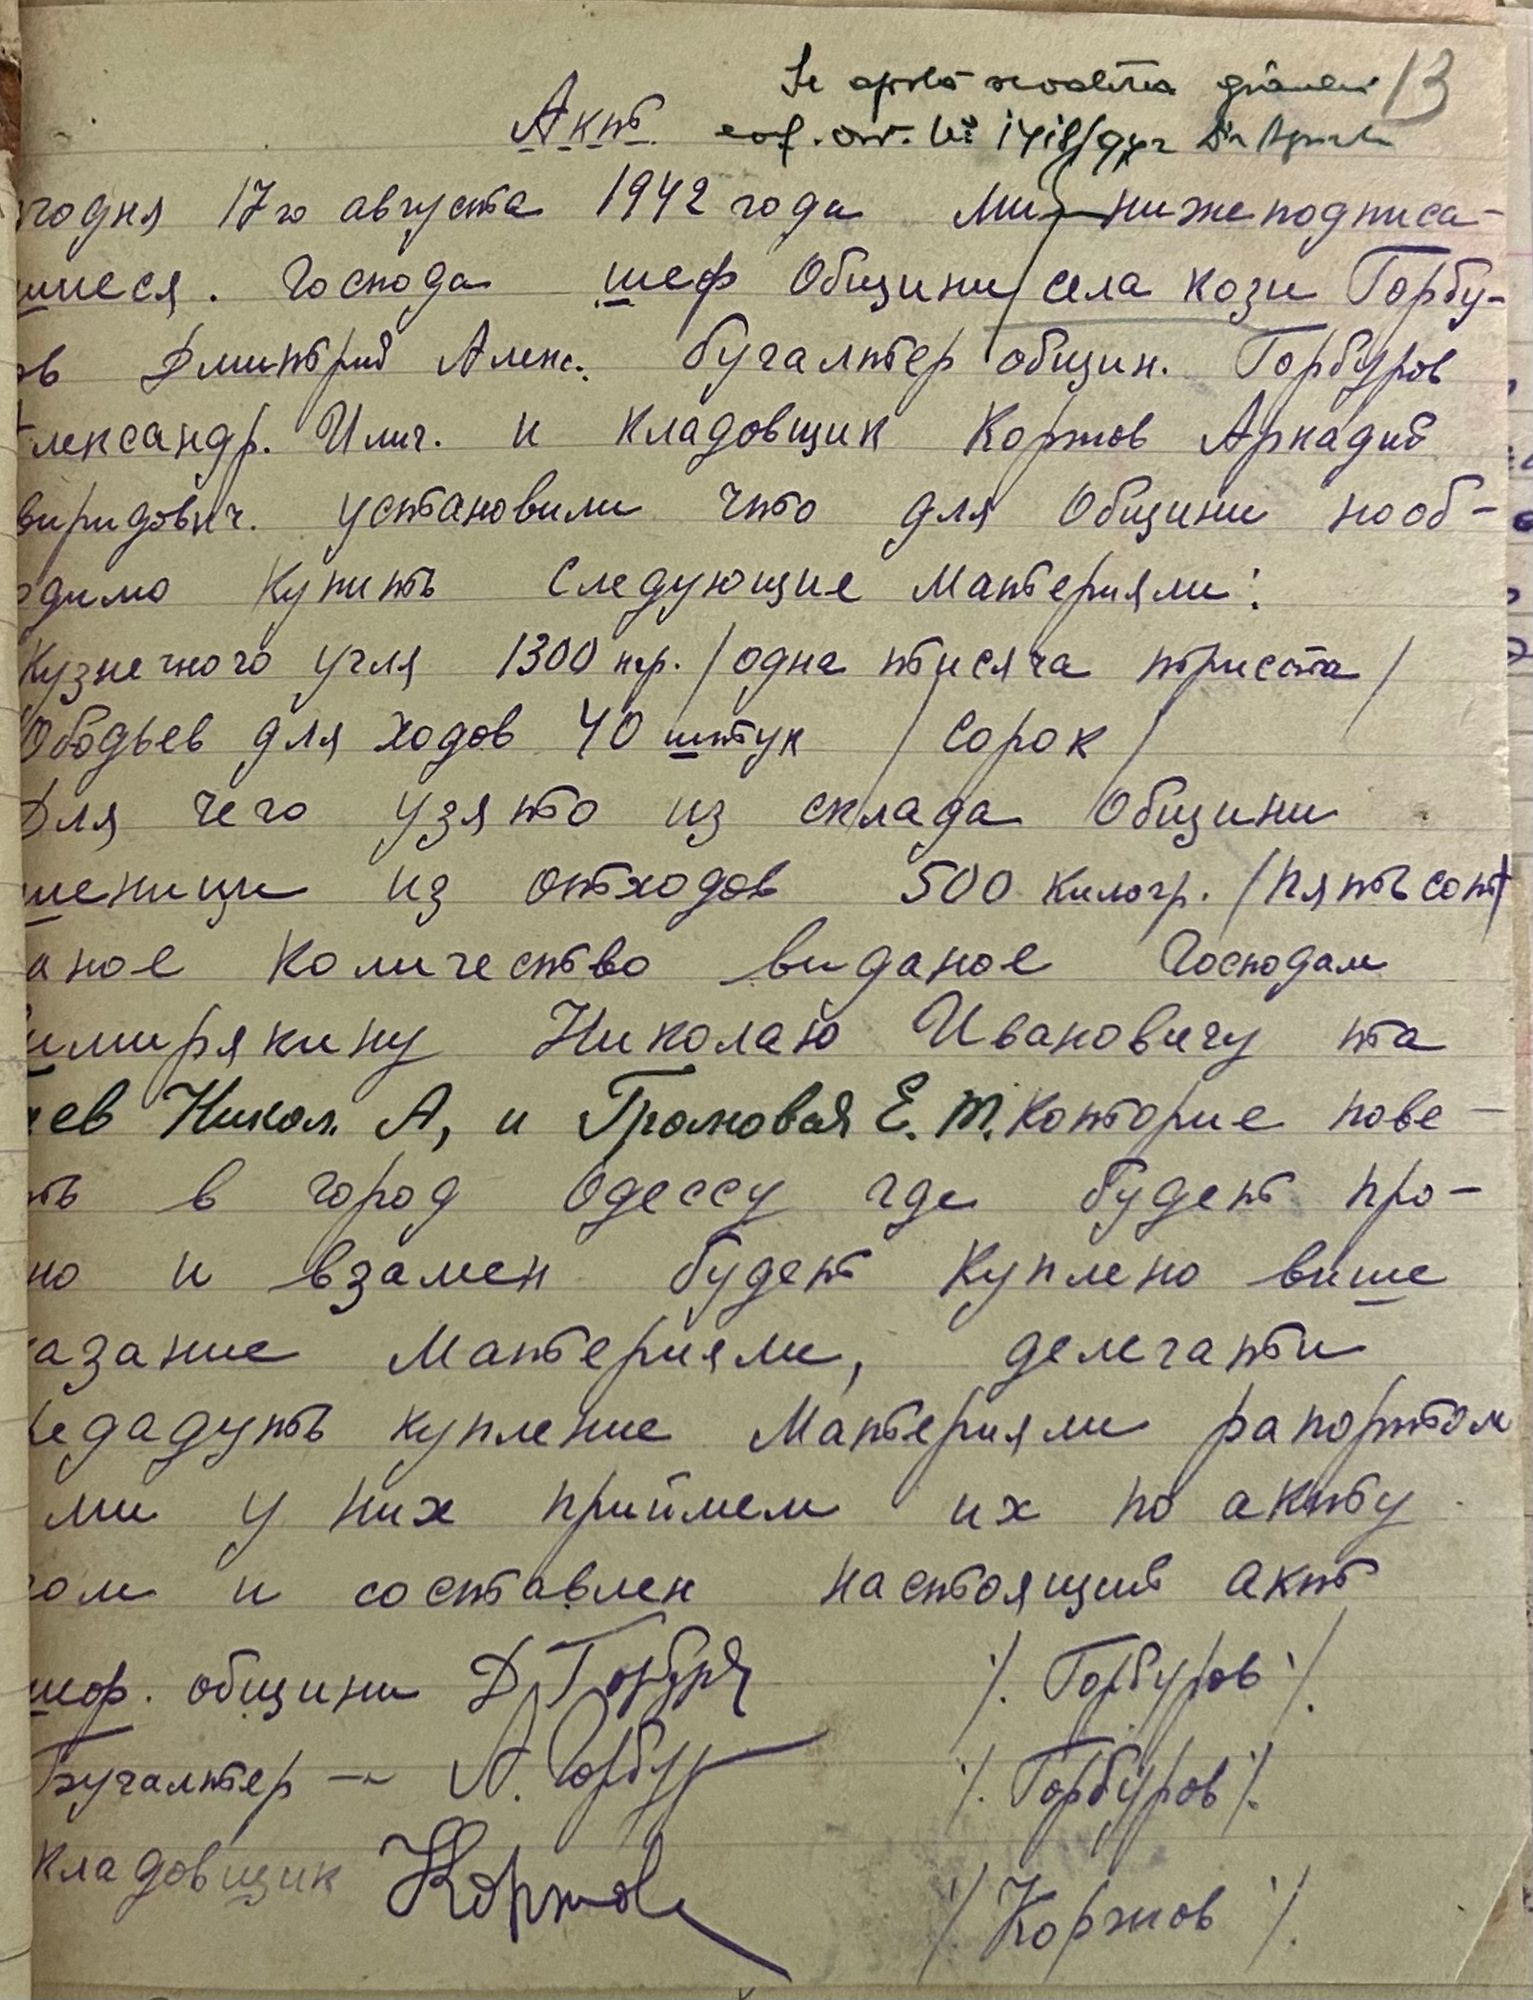 13
Se aprobă
Акт.
годня 17го августа 1942 года ми нижеподписа-
шиеся. Господа шеф Общини села кози Горбу-
ов Дмитрий Алекс. бугалтер общин. Горбуров
лександр. Илич. и кладовщик Коржов Аркадий
виридович. установили что для Общини нооб-
одимо купить следующие материяли:
Кузнечного угля 1300 кгр. /одна тисяча триста/
Ободьев для ходов 40 штук /сорок/
Для чего узято из склада Общини
шеници из отходов 500 килогр. /пятьсот/
аное количество виданое Господам
имирякину Николаю Ивановичу та
ев Никол. А, и Громовая Е. Т. которие пове-
ть в город Одессу где будет про-
но и взамен будет куплено више
казание материяли, делегати
едадуть купление материяли рапортом
ми у них приймем их по акту
ом и составлен настоящий акт
шеф. общини Д Горбур /. Горбуров ./
Бугалтер — А. Горбур /. Горбуров ./
кладовщик Коржов /. Коржов ./